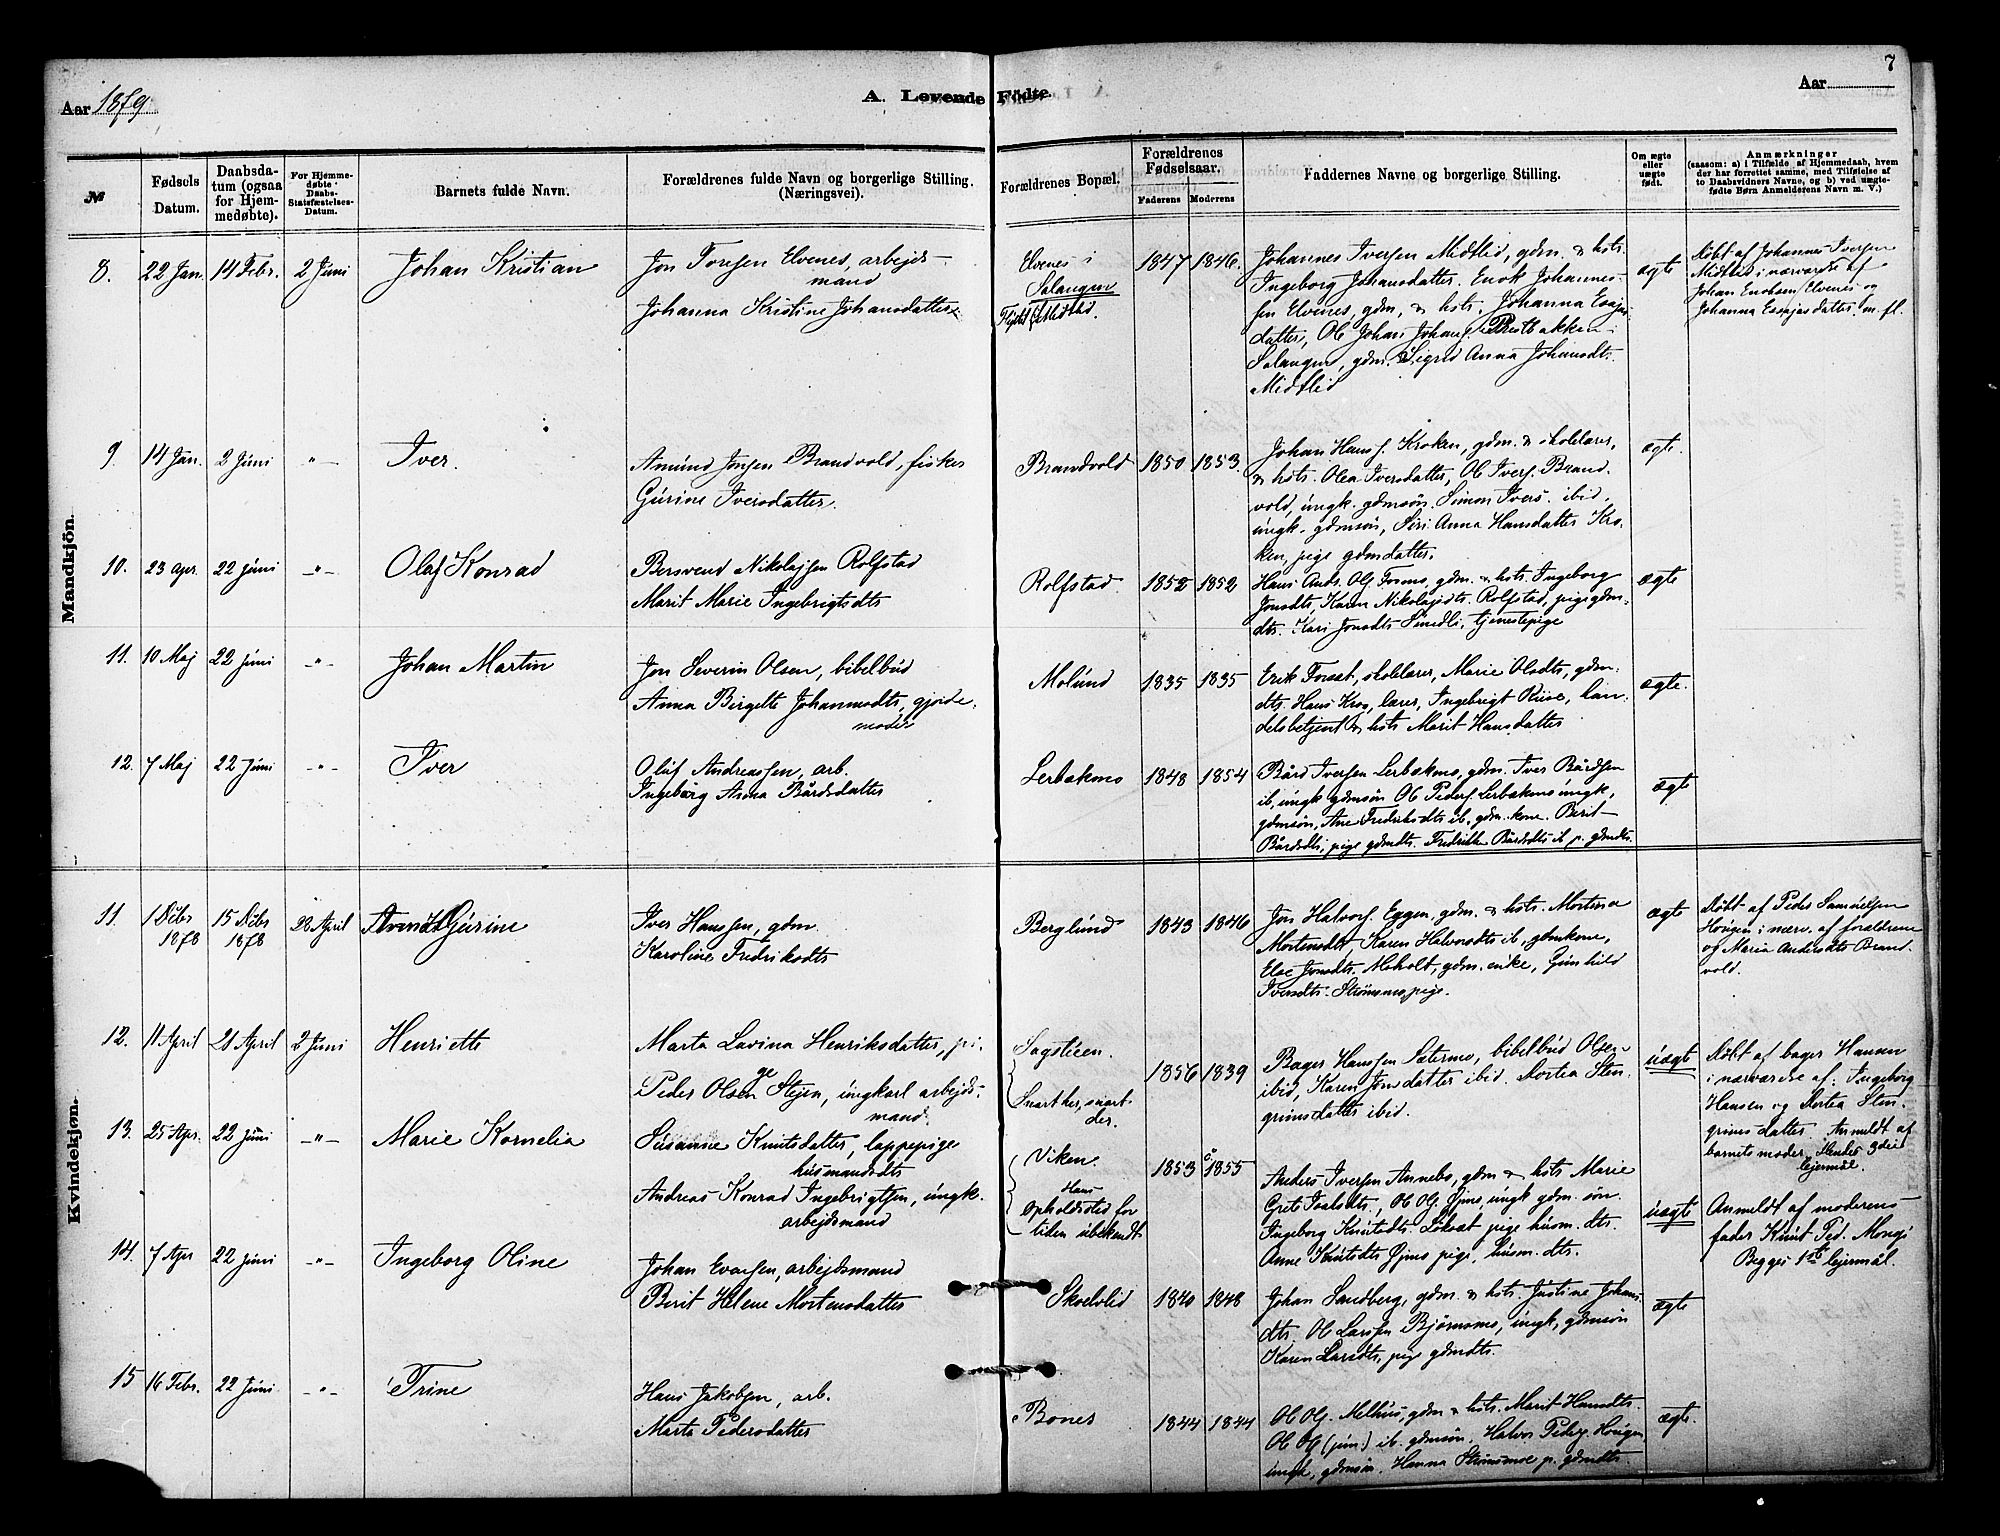 Aar 1879
A. Levende Fødte.
Aar
7
№
Fødsels Datum.
Daabsdatum (ogsaa for Hjemmedøbte).
For Hjemmedøbte Daabs-Stadfæstelses-Datum.
Barnets fulde Navn.
Forældrenes fulde Navn og borgerlige Stilling. (Næringsvei).
Forældrenes Bopæl.
Forældrenes Fødselsaar.
Faderens
Moderens
Faddernes Navne og borgerlige Stilling.
Om ægte eller uægte født.
Anmærkninger
(saasom: a) i Tilfælde af Hjemmedaab, hvem
der har forrettet samme, med Tilføielse af
to Daabsvidners Navne, og b) ved uægte-
fødte Børn Anmelderens Navn m. V.)
Mandkjön.
8. 22 Jan. 14 Febr. 2 Juni Johan Kristian
Jon Tonsen Elvenes, arbejds-
mand
Johanna Kristine Johansdatter
Elvenes i
Salangen
Midtlid.
1847 1846.
Johannes Iversen Midtlid, gdm. & hstr.
Ingeborg Johansdatter. Enok Johannes-
sen Elvenes, gdm, & hstr. Johanna Esajas
datter, Ol Johan Johans. Prestbakken i
Salangen, gdm. & Sigrid Anna Johansdt.
Midtlid
ægte
Døbt af Johannes Iversen
Midtlid i nærværelse af
Johan Enoksen Elvenes og
Johanna Esajasdatter m. fl.
9. 14 Jan. 2 Juni -"- Iver.
Amund Jonsen Brandvold, fisker
Gurine Iversdatter.
Brandvold 1850 1853.
Johan Hans. Kroken, gdm. & skolelærer,
& hstr. Olea Iversdatter, Ol Ivers. Brand-
vold, ungk. gdmsøn, Simon Ivers. ibid.
ungk. gdmsøn, Siri Anna Hansdatter Kro-
ken, pige gdmdatter.
ægte.
10. 23 Apr. 22 Juni -"- Olaf Konrad
Bersvend Nikolajsen Rolfstad
Marit Marie Ingebrigtsdtr
Rolfstad 1852 1852
Hans Ands. Olj Fosmo, gdm. & hstr. Ingeborg
Jonsdtr, Karen Nikolajsdtr. Rolfstad, pige gdm-
dtr. Kari Jonsdtr Sundli, tjenestepige
ægte
11. 10 Maj 22 Juni -"- Johan Martin
Jon Severin Olsen, bibelbud
Anna Birgitte Johannesdtr, gjorde-
moder
Molund 1835 1835
Erik Forsat, skolelærer, Marie Olsdtr, gdm-
dtr. Hans Krog, lærer, Ingebrigt Ruse, han-
delsbetjent & hstr Marit Hansdatter
ægte.
12. 7 Maj 22 Juni -"- Iver
Oluf Andreassen, arb.
Ingeborg Anna Bårdsdatter
Lerbakmo 1848 1854
Bård Iversen Lerbakmo, gdm. Iver Bårdsen
ib, ungk gdmsøn Ol Peders. Lerbakmo ungk,
gdmsøn, Ane Fredriksdtr ib. gdm.kone. Berit
Bårdsdtr, pige gdmdtr. Fredrikke Bårdsdtr ib p. gdmdtr.
ægte
Kvindekjøn.
11. 1 Dcbr 1878 15 Dcbr 1878 28 April Arendt Gurine
Iver Hanssen, gdm
Karoline Fredriksdtr
Berglund 1843 1846
Jon Halvors. Eggen, gdm. & hstr. Mortena
Mortensdtr, Karen Halvorsdtr ib, gdmkone,
Else Jonsdtr. Moholt, gdm. enke, Gunhild
Iversdtr. Strømsmo pige.
ægte
Døbt af Peder Samuelsen
Haugen i nærv. af forældrene
og Maria Andersdtr Brand-
vold.
12. 11 April 21 April 2 Juni Henriette
Marta Lavina Henriksdatter, pi-
ge
Peder Olsen Stejen, ungkarl arbejds-
mand.
Sagstuen.
Snart her, snart
der.
1856 1839
Bager Hanssen Sætermo, bibelbud Olsen
ibid, Karen Jonsdatter ibid. Dortea Sten-
grimsdatter ibid.
uægte
Døbt af bager Hansen
i nærværelse af: Ingeborg
Hansen og Dortea Sten-
grimsdatter. Anmeldt af
barnets moder. Hendes 3die
lejermål.
13. 25 Apr. 22 Juni -"- Marie Kornelia
Susanne Knutsdatter, lappepige
husmandsdtr
Andreas Konrad Ingebrigtsen, ungk.
arbejdsmand
Viken.
Hans
opholdssted for
tiden ubekendt
1853 1855
Anders Iversen Annebo, gdm & hstr Marie
Grete Isaksdtr, Ol Olj. Gjmo, ungk gdm. søn.
Ingeborg Knutsdtr. Løksat pige husm. dtr.
Anne Knutsdtr Gjmo pige, husm. dtr.
uægte
Anmeldt af moderens
fader Knut Ped. Mongj
Begges 1ste lejermål.
14. 7 Apr 22 Juni -"- Ingeborg Oline
Johan Evensen, arbejdsmand
Berit Helene Mortensdatter
Skoelvlid 1840 1848
Johan Sandberg, gdm. & hstr. Justine Johans-
dtr. Ol Larssen Bjørnsmo, ungk, gdmsøn
Karen Larsdtr, pige gdmdtr.
ægte
15 16 Febr. 22 Juni -"- Trine
Hans Jakobsen, arb.
Marta Pedersdatter
Bones 1844 1844
Ol Olj. Melhus, gdm & hstr. Marit Hansdtr.
Ol Olj (jun) ib. gdmsøn. Halvor Peders. Haugen
ungk, gdmsøn. Hanna Strømsmoe p. gdmdtr.
ægte.